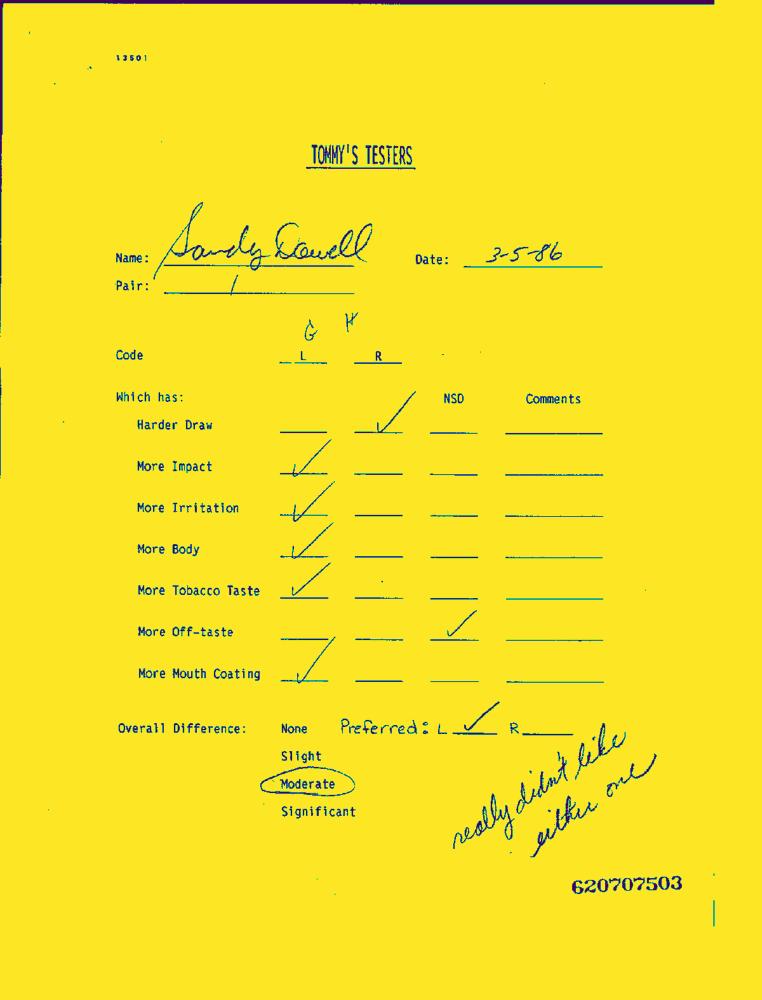 13501
TOMMY'S TESTERS
Name: Sandy Dowell Date: 3-5-86
Pair: 1
G H
Code L R
Which has: NSD Comments
Harder Draw ✓
More Impact ✓
More Irritation ✓
More Body ✓
More Tobacco Taste ✓
More Off-taste ✓
More Mouth Coating ✓
Overall Difference: None Preferred: L ✓ R
Slight
Moderate
Significant
really didn't like
either one
620707503